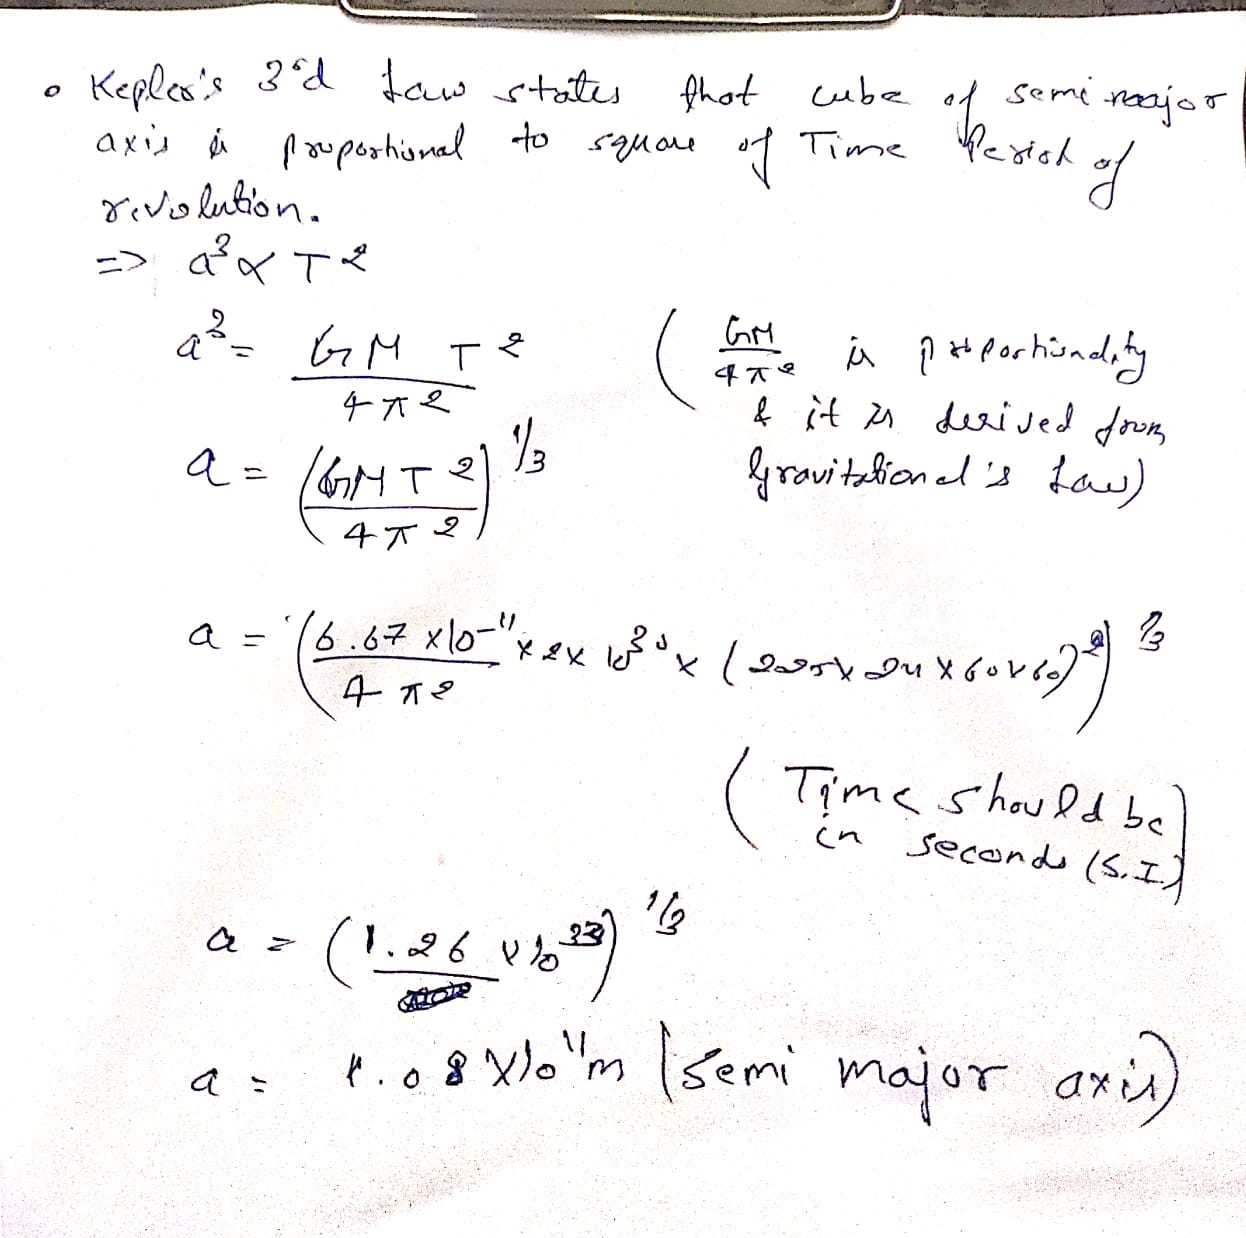 • Kepler's 3rd Law states that cube of semi major
axis is proportional to square of Time Period of
revolution.
=> a³ ∝ T²
a³ = GM T² / 4π² ( GM / 4π² is proportionality
& it is derived from
a = (GMT² / 4π²)^1/3 Gravitational's Law)
a = (6.67 x10-¹¹ x 2 x 10³⁰ x (225x24x60x60)² / 4π²)^1/3
( Time should be
in seconds (S.I)
a = (1.26 x10³³)^1/3
a = 1.08 x10¹¹m (semi major axis)